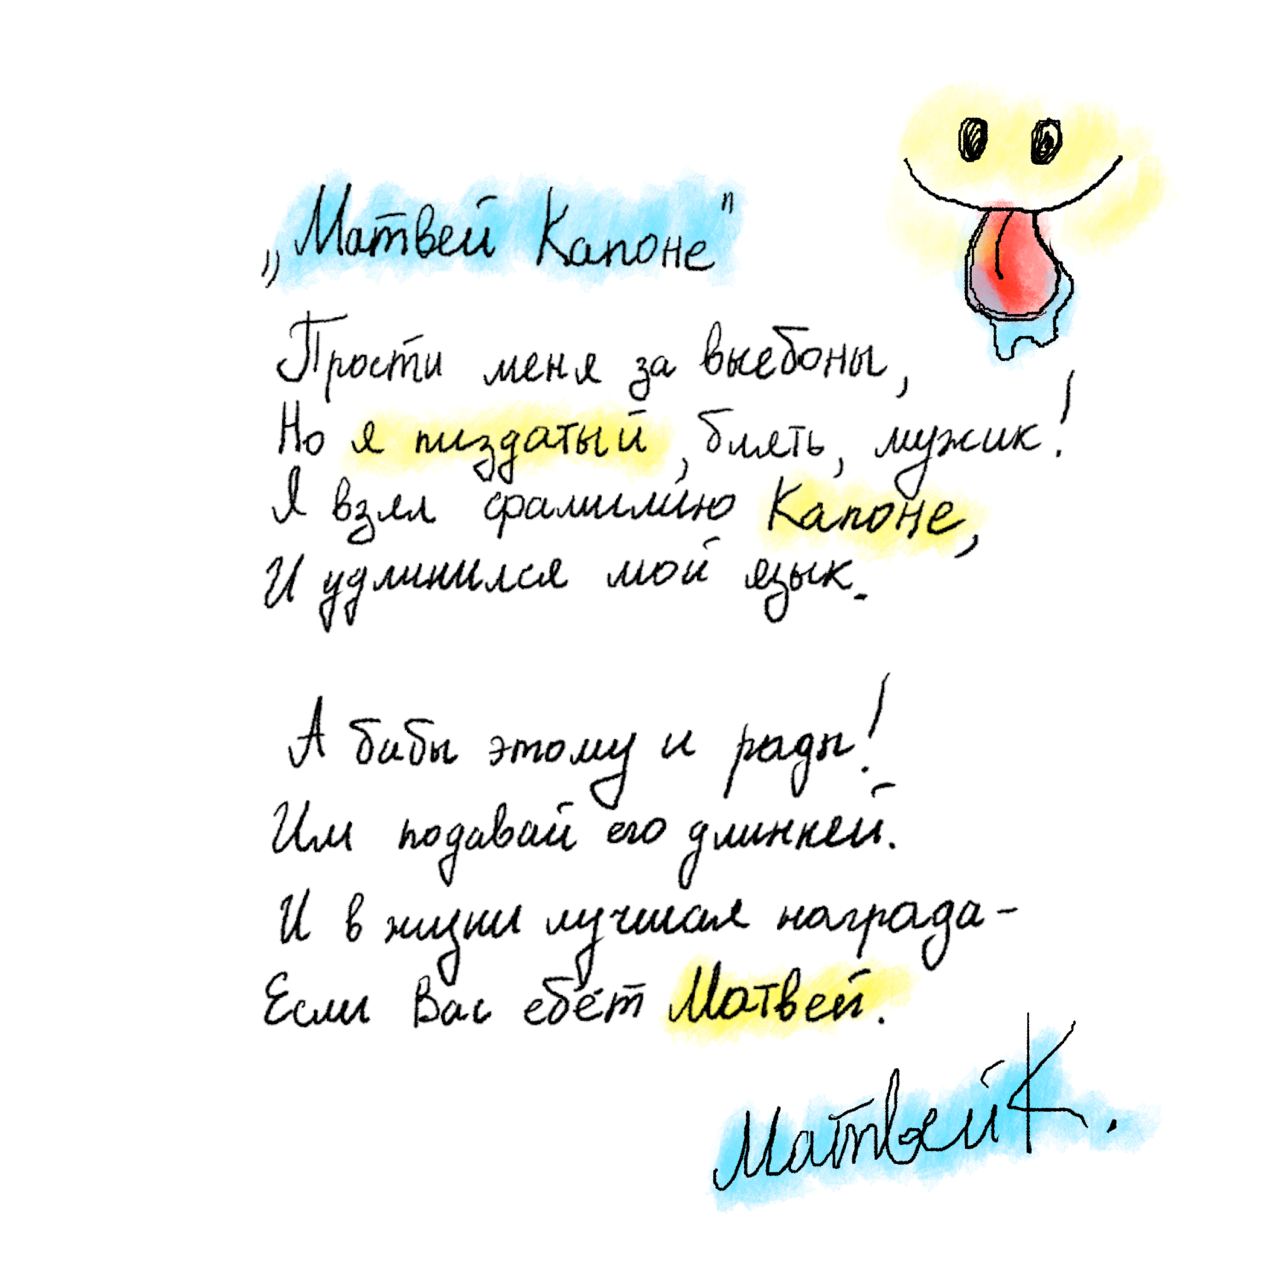 „Матвей Капоне"
Прости меня за выебоны,
Но я пиздатый, блять, мужик!
Я взял фамилию Капоне,
И удлинился мой язык.
А бабы этому и рады!
Им подавай его длинней.
И в жизни лучшая награда -
Если Вас ебёт Матвей.
Матвей К.